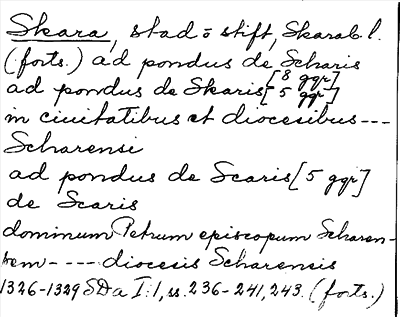 Skara, stad o stift, Skarab. l.
(forts.) ad pondus de Scharis
[8 ggr]
ad pondus de Skaris [5 ggr]
in ciuitatibus et diocesibus ---
Scharensi
ad pondus de Scaris [5 ggr]
de Scaris
dominum Petrum episcopum Scharen-
tem ---- diocesis Scharensis
1326-1329 SDa I:1, ss. 236-241, 243. (forts.)